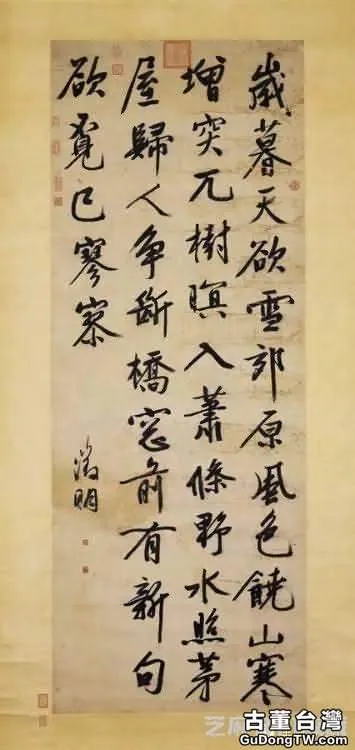 歲暮天欲雪郊原風色饒山寒
增突兀樹暝入蕭條野水照茅
屋歸人争斷橋窓前有新句
欲覓已寥
徵明
古董台灣
GuDongTW.com